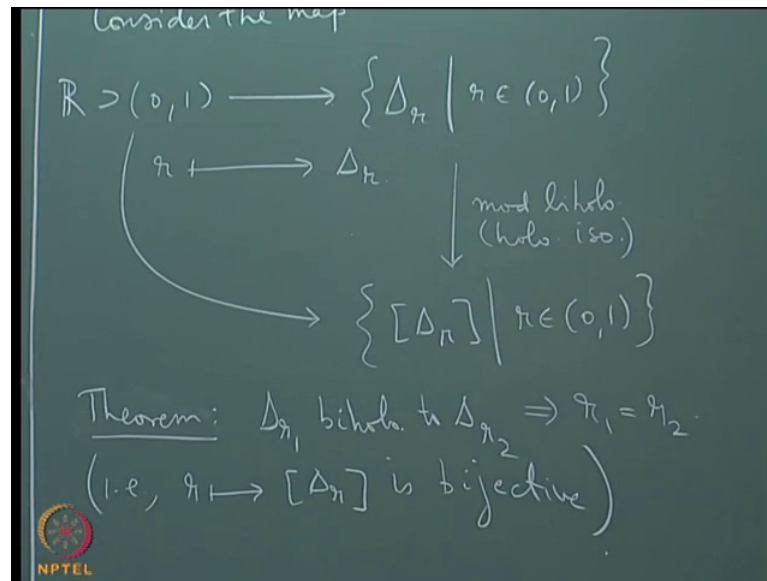 Consider the map
ℝ ⊃ (0,1) ⟶ { Δ_r | r ∈ (0,1) }
r ⟼ Δ_r
mod biholo.
(holo. iso.)
{ [Δ_r] | r ∈ (0,1) }
Theorem: Δ_r₁ biholo. to Δ_r₂ ⇒ r₁ = r₂.
(i.e., r ⟼ [Δ_r] is bijective)
NPTEL